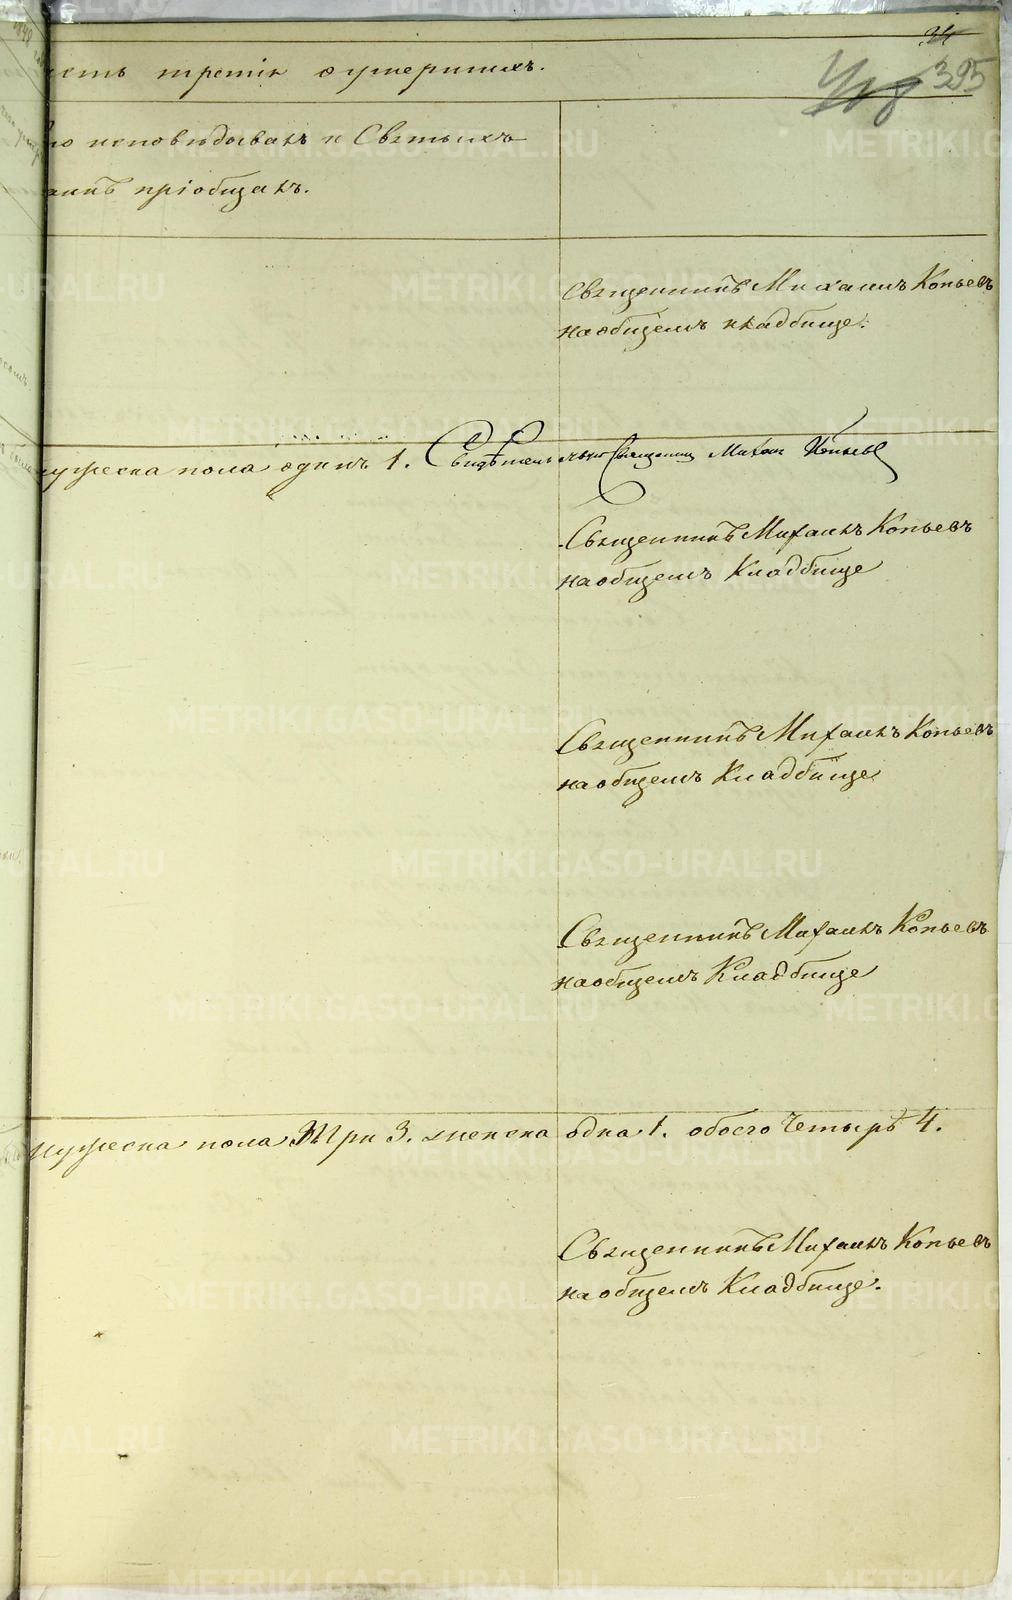 34
395
часть третія оумершихъ.
кто исповѣдывалъ и Святыхъ
таинъ пріобщалъ.
Священникъ Михаилъ Копьевъ
на общемъ кладбище.
мужеска пола одинъ 1. Свидѣтельствую Священник Михаил Копьевъ
Священникъ Михаилъ Копьевъ
на общемъ Кладбище
Священникъ Михаилъ Копьевъ
на общемъ Кладбище
Священникъ Михаилъ Копьевъ
на общемъ Кладбище
мужеска пола три 3. женска одна 1. обоего четырѣ 4.
Священникъ Михаилъ Копьевъ
на общемъ Кладбище.
METRIKI.GASO-URAL.RU